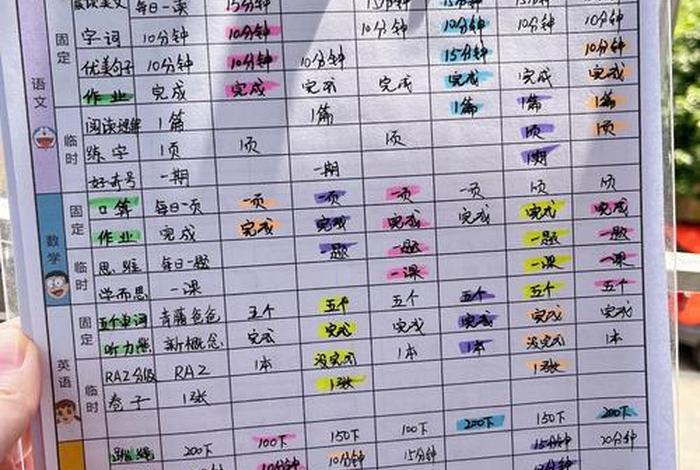 晨读美文 每日一读 15分钟 15分钟 15分钟 15分钟 10分钟
语文 固定 字词 10分钟 10分钟 10分钟 10分钟 10分钟 10分钟
优美句子 10分钟 10分钟 10分钟 15分钟 10分钟
作业 完成 完成 完成 完成 完成 完成 完成
临时 阅读理解 1篇 1篇 1篇 1篇 1篇
练字 1页 1页 1页 1页 1页
好奇号 一期 一期 1期
数学 固定 口算 每日一页 一页 一页 一页 一页 1页 1页
作业 完成 完成 完成 完成 完成 完成 完成
临时 思维 每日一题 一题 一题 一题 一题
学而思 一课 一课 一课 一课
英语 固定 五个单词 青藤爸爸 五个 五个 五个 五个 五个 五个
听力 新概念 完成 完成 完成 完成 完成 完成
临时 RAZ分级 RAZ 1本 没完成 1本 1本 没完成 1本
卷子 1张 1张 1张
跳绳 200下 100下 150下 100下 200下 150下 200下
10分钟 10分钟 15分钟 15分钟 20分钟